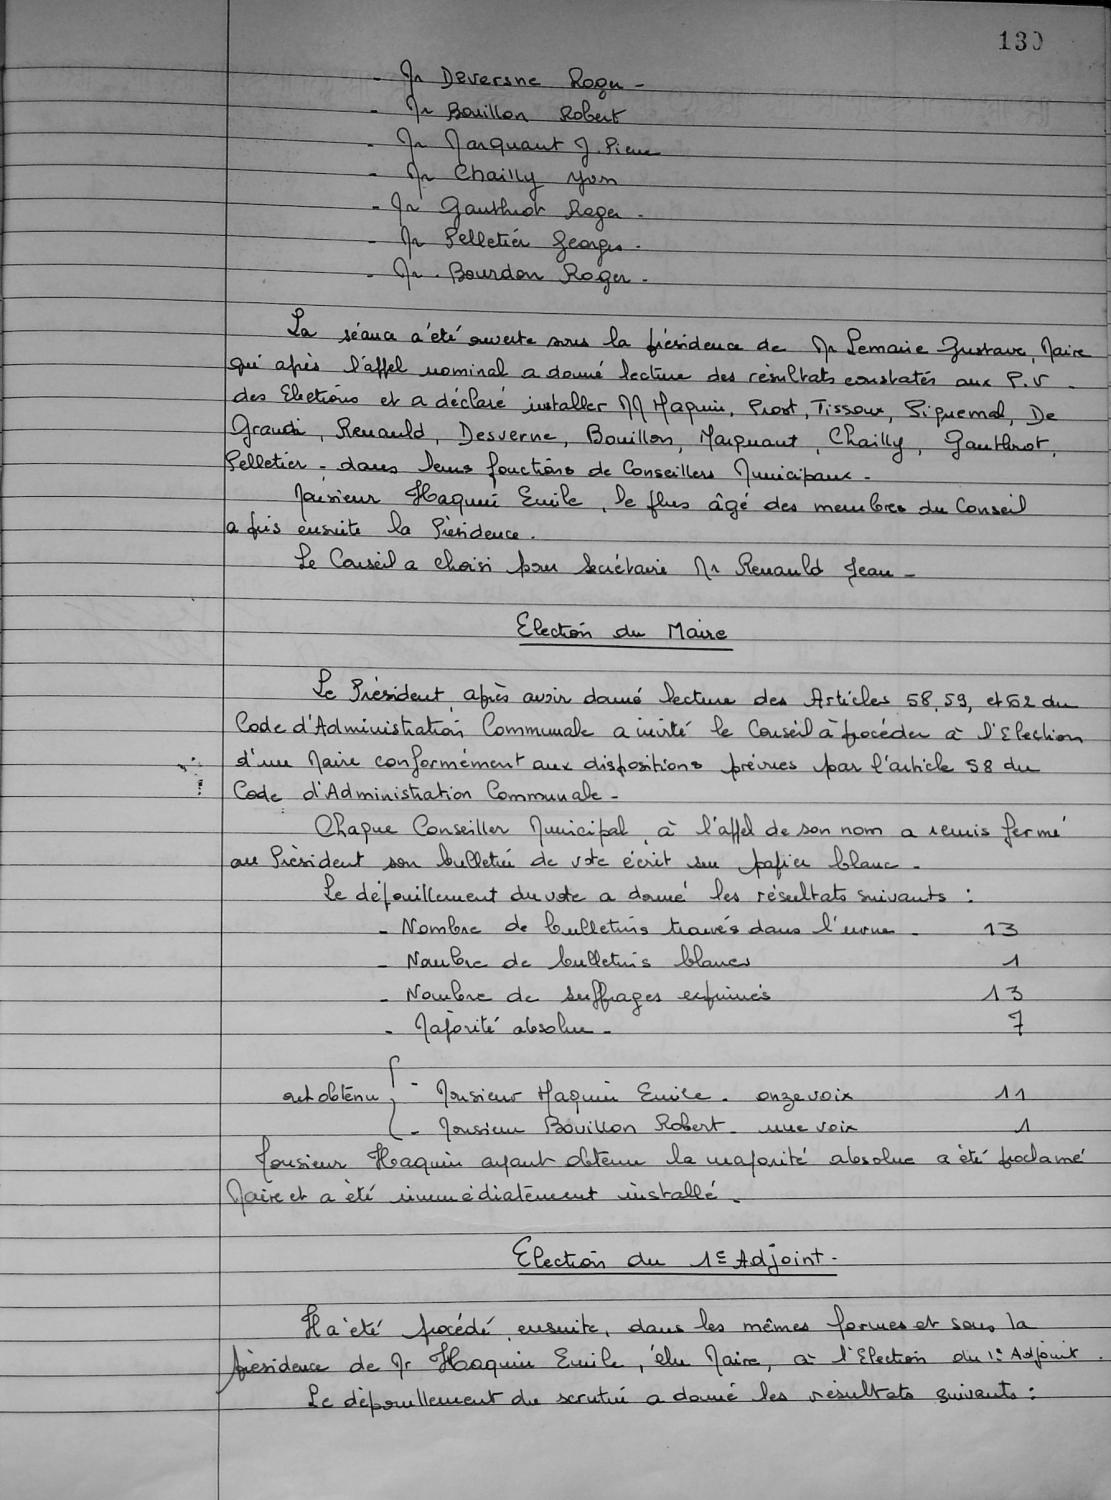 130
- Mr Deversne Roger -
- Mr Bouillon Robert
- Mr Marquant J. Pierre
- Mr Chailly Yvon
- Mr Gauthrot Roger -
- Mr Pelletier Georges -
- Mr. Bourdon Roger -
La séance a été ouverte sous la présidence de Mr Lemaire Gustave, Maire
qui après l'appel nominal a donné lecture des résultats constatés aux P.V -
des Elections et a déclaré installer MM Haquin, Prost, Tissoux, Piquemal, De
Grandi, Renauld, Desverne, Bouillon, Marquant, Chailly, Gauthrot,
Pelletier - dans leurs fonctions de Conseillers Municipaux -
Monsieur Haquin Emile, le plus âgé des membres du Conseil
a pris ensuite la Présidence.
Le Conseil a choisi pour Secrétaire Mr Renauld Jean -
Election du Maire
Le Président, après avoir donné lecture des Articles 58, 59, et 62 du
Code d'Administration Communale a invité le Conseil à procéder à l'Election
d'un Maire conformément aux dispositions prévues par l'article 58 du
Code d'Administration Communale -
Chaque Conseiller Municipal, à l'appel de son nom a remis fermé
au Président son bulletin de vote écrit sur papier blanc -
Le dépouillement du vote a donné les résultats suivants :
- Nombre de bulletins trouvés dans l'urne - 13
- Nombre de bulletins blancs 1
- Nombre de suffrages exprimés 13
- Majorité absolue - 7
ont obtenu { - Monsieur Haquin Emile - onze voix 11
- Monsieur Bouillon Robert - une voix 1
Monsieur Haquin ayant obtenu la majorité absolue a été proclamé
Maire et a été immédiatement installé.
Election du 1E Adjoint -
Il a été procédé ensuite, dans les mêmes formes et sous la
présidence de Mr Haquin Emile, élu Maire, à l'Election du 1e Adjoint.
Le dépouillement du scrutin a donné les résultats suivants :